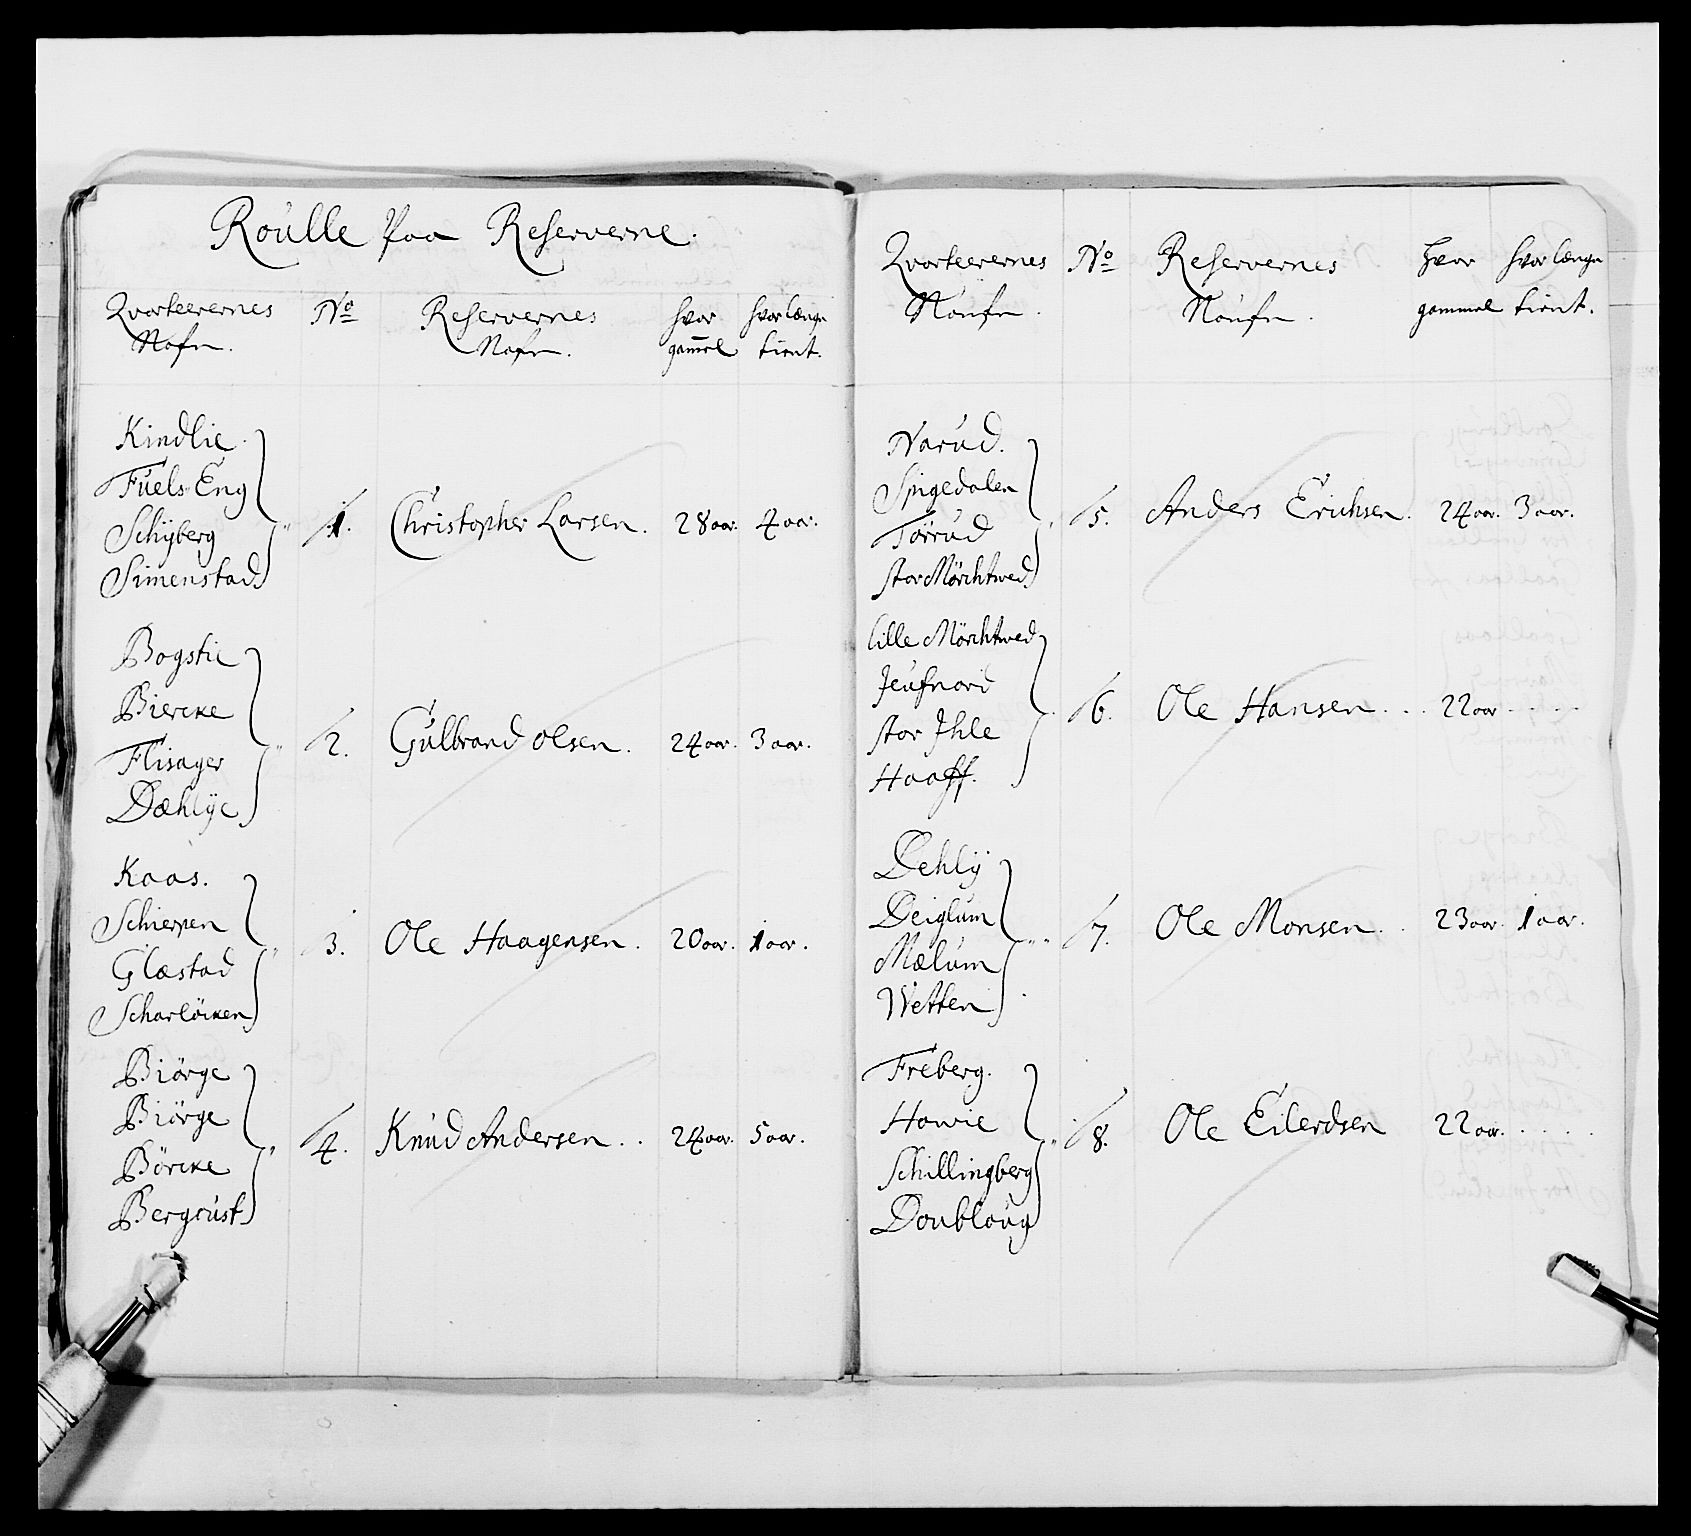 Roulle paa Reserverne.
Qvarteerernes Nafn. No Reservernes Nafn. hvor gammel hvor længe tient.
Kindlie.
Fuels Eng
Schÿberg
Simenstad
1. Christopher Larsen. 28 aar. 4 aar.
Bogstie
Biercke
Flisager
Dæhlÿe
2. Gulbrand Olsen. 24 aar. 3 aar.
Kaas.
Schierpen
Glæstad
Scharløcken
3. Ole Haagensen. 20 aar. 1 aar.
Biørge
Biørge
Børcke
Bergrust
4. Knud Andersen.. 24 aar. 5 aar.
Qvarteerernes Naufn. No Reservernes Naufn. hvor gammel hvor længe tient.
Narud.
Spigedalen
Tørrud
stor Mörchtved
5. Anders Erichsen. 24 aar. 3 aar.
lille Mörchtved
Jeufnard
stor Ihle
Haaff.
6. Ole Hansen... 22 aar.....
Dehlÿ
Deiglum
Mælum
Wetten
7. Ole Monsen.. 23 aar. 1 aar.
Freberg.
Howie
Schillingberg
Doubloug
8. Ole Eilerdsen 22 aar.....